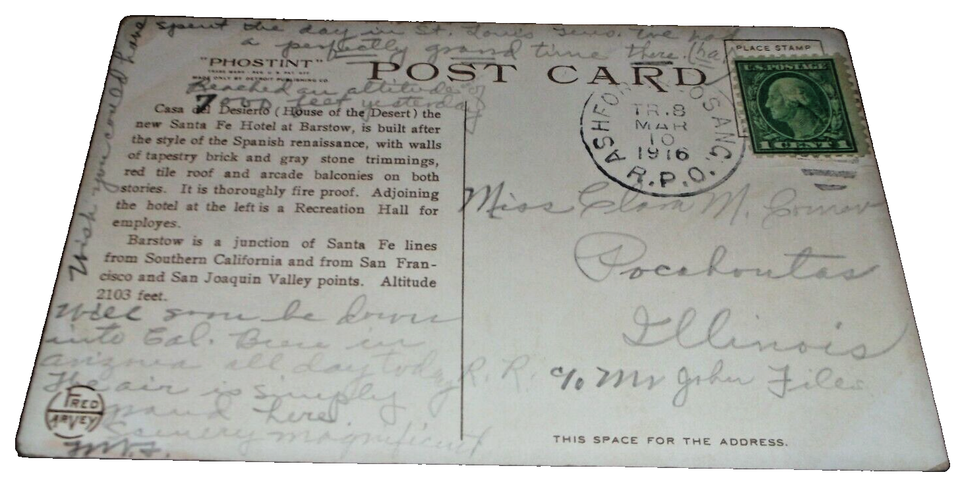 spent the day in St. Louis Tues. We had
a perfectly grand time there.
"PHOSTINT"
POST CARD
PLACE STAMP
U.S. POSTAGE
1 CENT 1
Reached an altitude of
7000 feet yesterday
Casa del Desierto (House of the Desert) the
new Santa Fe Hotel at Barstow, is built after
the style of the Spanish renaissance, with walls
of tapestry brick and gray stone trimmings,
red tile roof and arcade balconies on both
stories. It is thoroughly fire proof. Adjoining
the hotel at the left is a Recreation Hall for
employes.
Barstow is a junction of Santa Fe lines
from Southern California and from San Fran-
cisco and San Joaquin Valley points. Altitude
2103 feet.
Will soon be down
into Cal. Been in
Arizona all day today
The air is simply
grand here.
Scenery magnificent
Wish you could have
FRED
HARVEY
TR. 8
MAR
10
1916
R.P.O.
Miss M.
Pocahontas
Illinois
R. R. c/o Mr John File
THIS SPACE FOR THE ADDRESS.